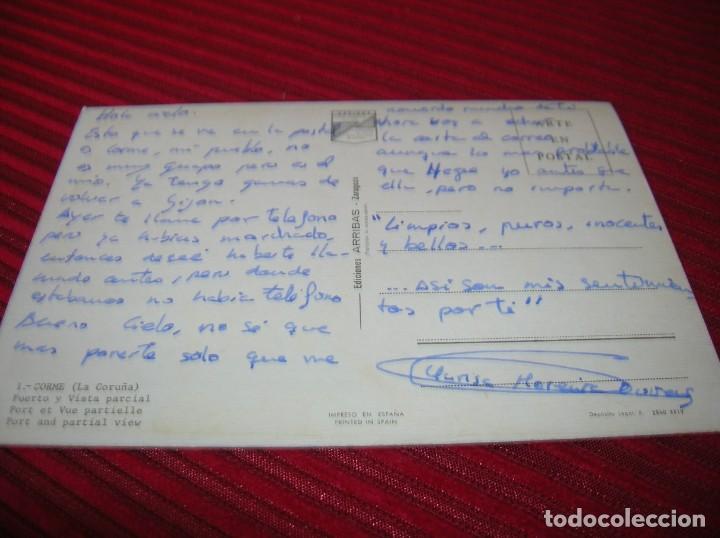 Hola
Esto que se ve en la postal
es corme, mi pueblo, no
es muy guapo pero es el
mío. Ya tengo ganas de
volver a Gijón.
Ayer te llamé por teléfono
pero ya habías marchado,
entonces deseé haberte lla-
mado antes, pero donde
estábamos no había teléfono
Bueno Cielo, no sé que
mas ponerte solo que me
1.-CORME (La Coruña)
Puerto y Vista parcial
Port et Vue partielle
Port and partial view
ARRIBAS
Ediciones ARRIBAS - Zaragoza
IMPRESO EN ESPAÑA
PRINTED IN SPAIN
ARTE
EN
POSTAL
acuerdo mucho de ti
Ahora voy a echar
la carta al correo
aunque lo mas probable
que llegue yo antes que
ella, pero no importa.
"Limpios, puros, inocentes
y bellos...
...Así son mis sentimien-
tos por ti"
Moreira
Depósito Legal
todocoleccion.net